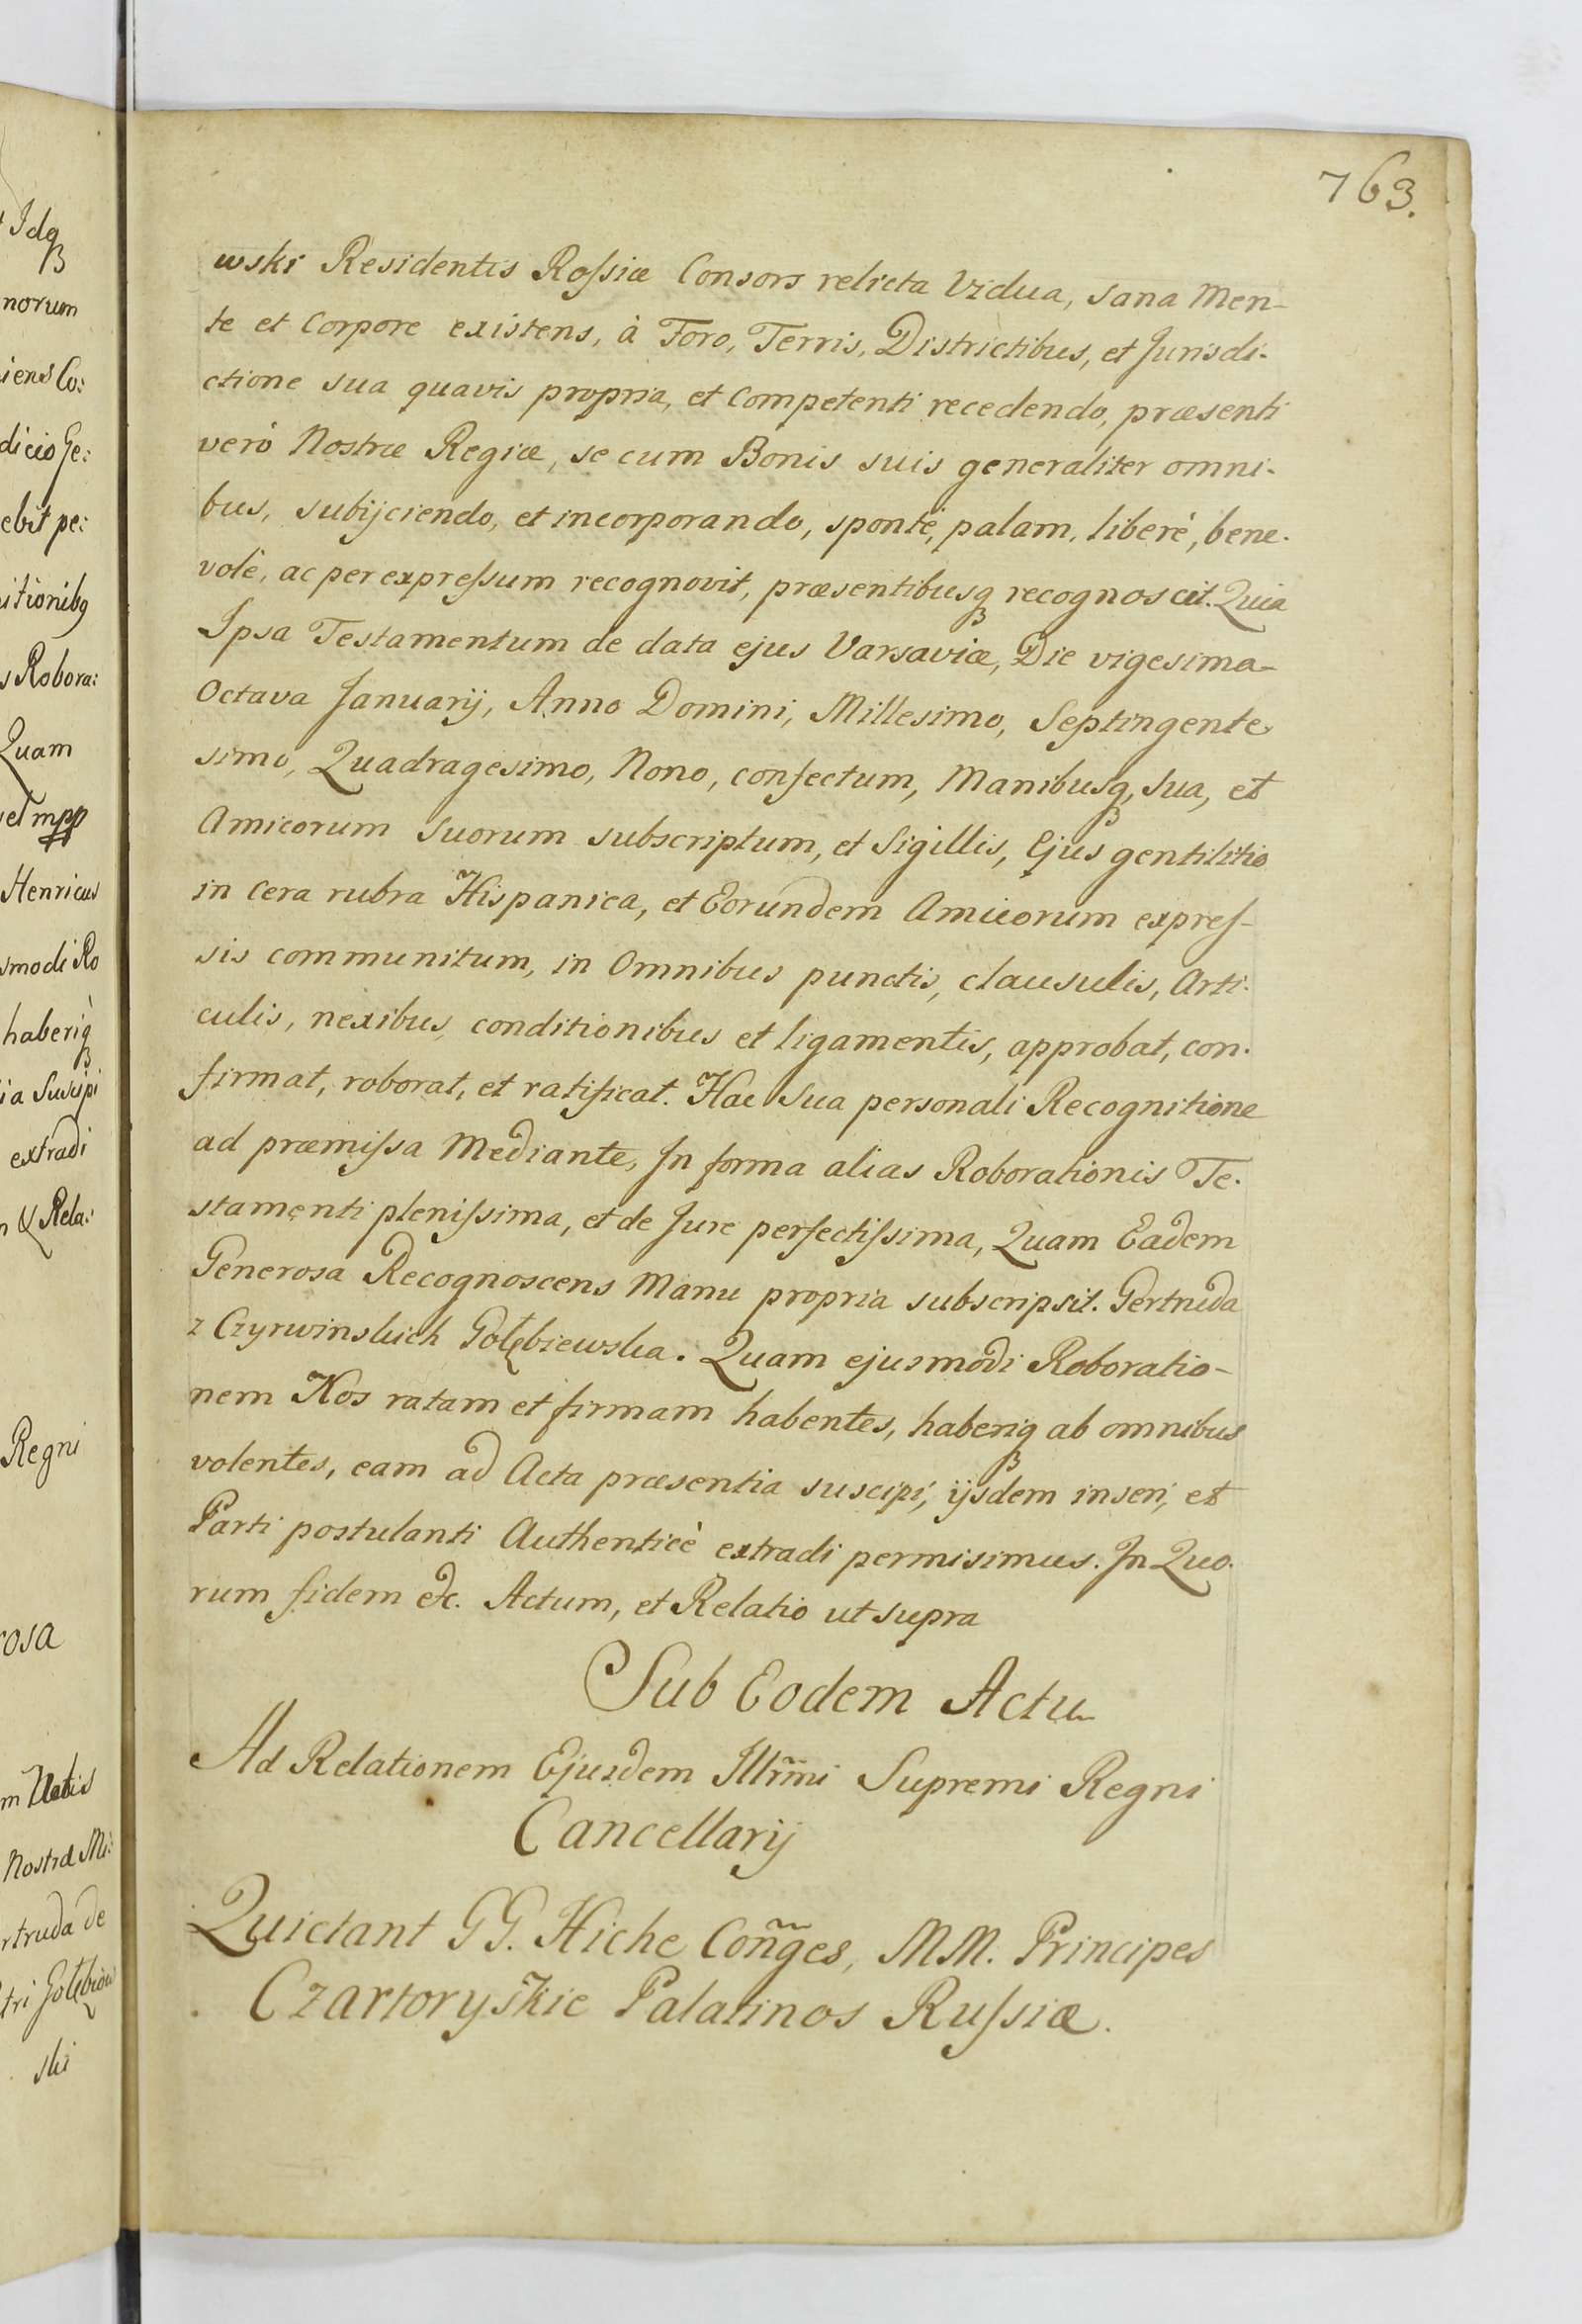 763.
wski Residentis Roſsiæ Consors relicta Vidua, sana Men-
te et Corpore existens, à Foro, Terris, Districtibus, et Jurisdi-
ctione sua quavis propria, et Competenti recedendo, præsenti
verò Nostræ Regiæ, se cum Bonis suis generaliter omni-
bus, subijciendo, et incorporando, spontè, palam, liberè, bene-
volè, ac per expreſsum recognovit, præsentibusq₃ recognoscit. Quia
Ipsa Testamentum de data ejus Varsaviæ, Die vigesima-
Octava Januarij, Anno Domini, Millesimo, Septingente
simo, Quadragesimo, Nono, confectum, Manibusq₃, sua, et
Amicorum suorum subscriptum, et Sigillis, Ejus gentilitio
in cera rubra Hispanica, et Eorundem Amicorum expreſ-
sis communitum, in Omnibus punctis, clausulis, Arti-
culis, nexibus, conditionibus et ligamentis, approbat, con-
firmat, roborat, et ratificat. Hac Sua personali Recognitione
ad præmiſsa Mediante, In forma alias Roborationis Te-
stamenti pleniſsima, et de Jure perfectiſsima, Quam Eadem
Generosa Recognoscens Manu propria subscripsit. Gertruda
z Czyrwinskich Gołębiewska. Quam ejusmodi Roboratio-
nem Nos ratam et firmam habentes, haberiq₃ ab omnibus
volentes, eam ad Acta præsentia suscipi, ijsdem inseri, et
Parti postulanti Authenticè extradi permisimus. In Quo-
rum fidem etc. Actum, et Relatio ut supra
Sub Eodem Actu
Ad Relationem Ejusdem Illr̃mi Supremi Regni
Cancellarij
Quietant GG. Hiche Coñges, MM. Principes
Czartoryskie Palatinos Ruſsiæ.